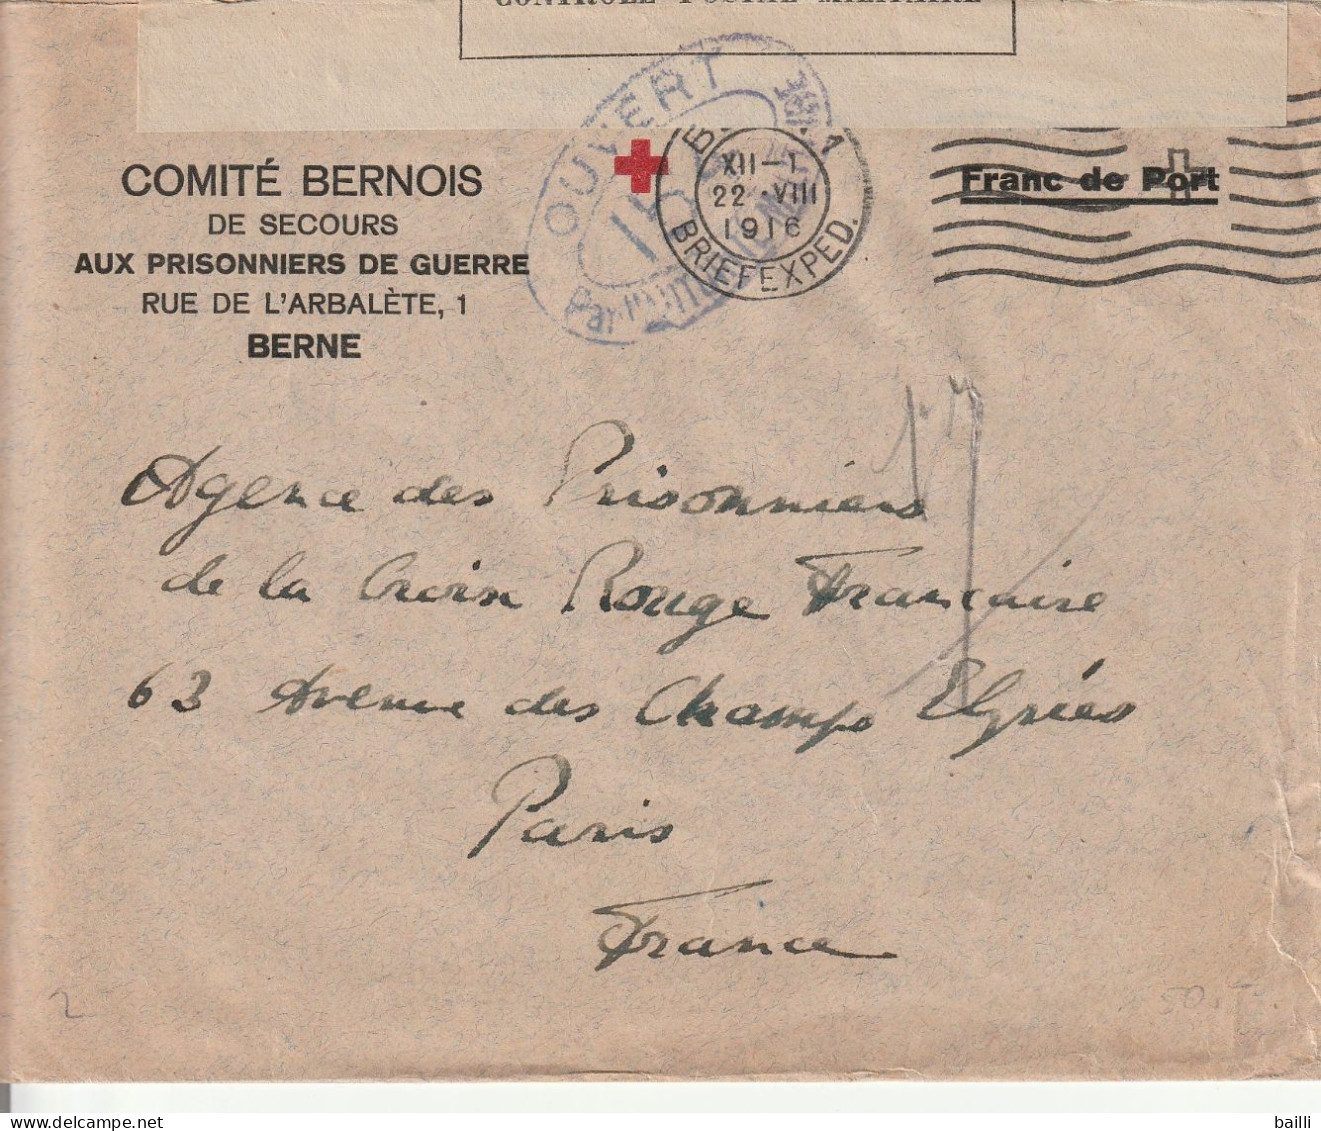 CONTRÔLE POSTAL MILITAIRE
OUVERT
Par
XII–1
22·VIII
1916
BRIEFEXPED.
1
Franc de Port
COMITÉ BERNOIS
DE SECOURS
AUX PRISONNIERS DE GUERRE
RUE DE L'ARBALÈTE, 1
BERNE
Agence des Prisonniers
de la Croix Rouge Française
63 Avenue des Champs Elysées
Paris
France
2
50.-
delcampe.net
bailli